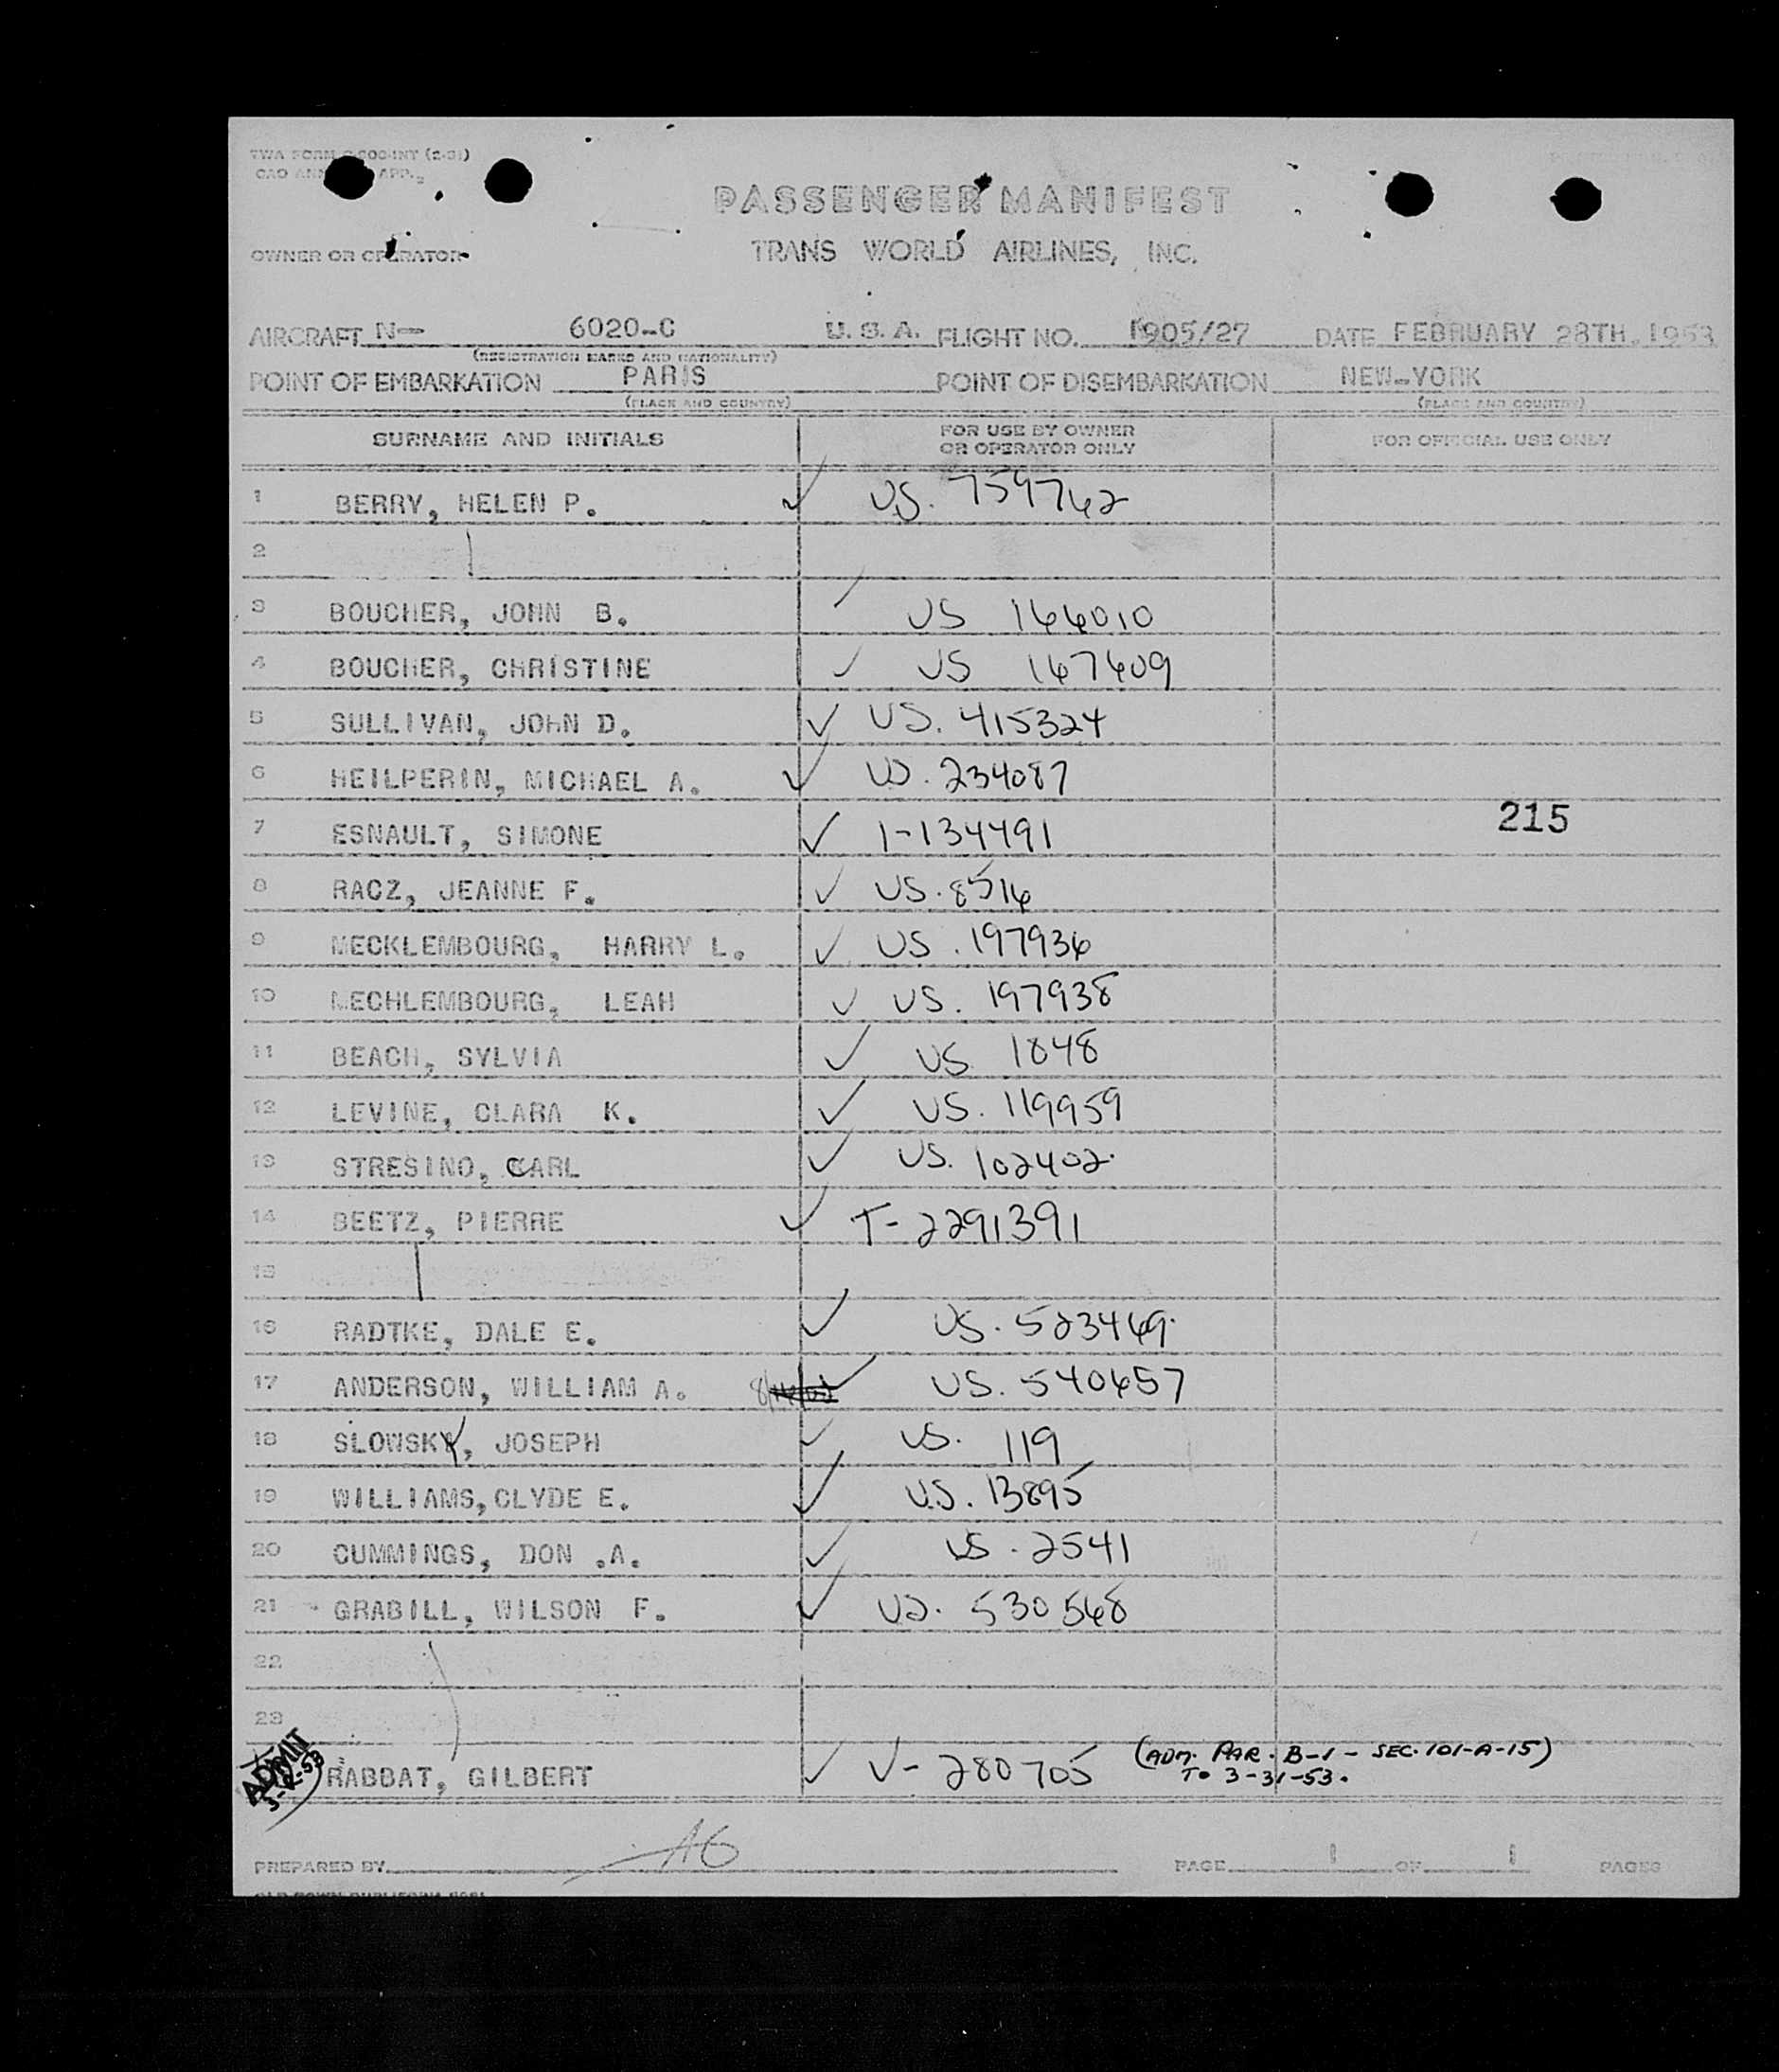 TWA FORM
PASSENGER MANIFEST
OWNER OR OPERATOR
TRANS WORLD AIRLINES, INC.
AIRCRAFT N- 6020-C U.S.A. FLIGHT NO. 1905/27 DATE FEBRUARY 28TH.1953
(REGISTRATION MARKS AND NATIONALITY)
POINT OF EMBARKATION PARIS POINT OF DISEMBARKATION NEW-YORK
(PLACE AND COUNTRY) (PLACE AND COUNTRY)
SURNAME AND INITIALS FOR USE BY OWNER OR OPERATOR ONLY FOR OFFICIAL USE ONLY
1 BERRY, HELEN P. ✓ US. 759762
2
3 BOUCHER, JOHN B. ✓ US 166010
4 BOUCHER, CHRISTINE ✓ US 167609
5 SULLIVAN, JOHN D. ✓ US. 415324
6 HEILPERIN, MICHAEL A. ✓ US. 234087
7 ESNAULT, SIMONE ✓ I-134491 215
8 RACZ, JEANNE F. ✓ US. 8516
9 MECKLEMBOURG, HARRY L. ✓ US. 197936
10 MECHLEMBOURG, LEAH ✓ US. 197938
11 BEACH, SYLVIA ✓ US 1848
12 LEVINE, CLARA K. ✓ US. 119959
13 STRESINO, CARL ✓ US. 102402.
14 BEETZ, PIERRE ✓ T-2291391
15
16 RADTKE, DALE E. ✓ US. 523469.
17 ANDERSON, WILLIAM A. ✓ US. 540657
18 SLOWSKY, JOSEPH ✓ US. 119
19 WILLIAMS,CLYDE E. ✓ U.S. 13895
20 CUMMINGS, DON .A. ✓ US. 2541
21 GRABILL, WILSON F. ✓ US. 530568
22
23
ADMIT
RABBAT, GILBERT ✓ V-280705 (ADM. PAR. B-1 - SEC. 101-A-15)
TO 3-31-53.
PREPARED BY AG PAGE 1 OF 1 PAGES